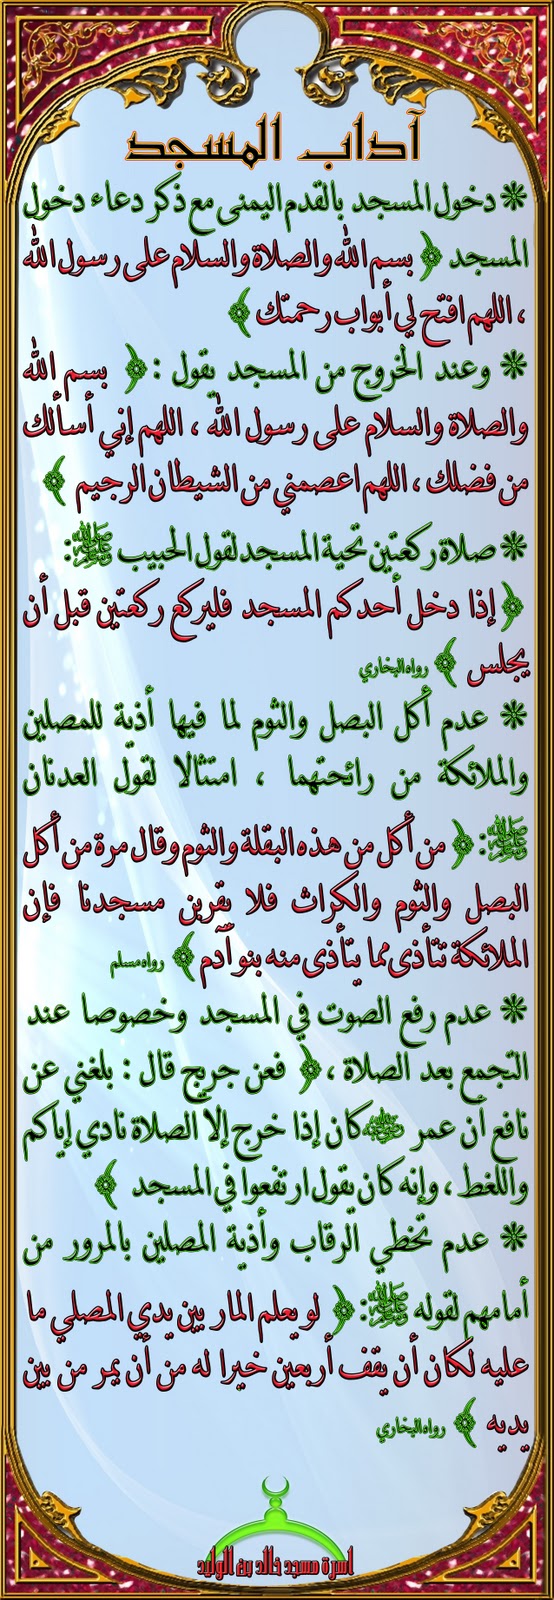 آداب المسجد
❋ دخول المسجد بالقدم اليمنى مع ذكر دعاء دخول
المسجد ﴿ بسم الله والصلاة والسلام على رسول الله
، اللهم افتح لي أبواب رحمتك ﴾
❋ وعند الخروج من المسجد يقول : ﴿ بسم الله
والصلاة والسلام على رسول الله ، اللهم إني أسألك
من فضلك ، اللهم اعصمني من الشيطان الرجيم ﴾
❋ صلاة ركعتين تحية المسجد لقول الحبيب ﷺ:
﴿ إذا دخل أحدكم المسجد فليركع ركعتين قبل أن
يجلس ﴾ رواه البخاري
❋ عدم أكل البصل والثوم لما فيها أذية للمصلين
والملائكة من رائحتهما ، امتثالا لقول العدنان
ﷺ: ﴿ من أكل من هذه البقلة والثوم وقال مرة من أكل
البصل والثوم والكراث فلا يقربن مسجدنا فإن
الملائكة تتأذى مما يتأذى منه بنو آدم ﴾ رواه مسلم
❋ عدم رفع الصوت في المسجد وخصوصا عند
التجمع بعد الصلاة ، ﴿ فعن جريج قال : بلغني عن
نافع أن عمر رضي الله عنه كان إذا خرج إلا الصلاة نادي إياكم
واللغط ، وإنه كان يقول ارتفعوا في المسجد ﴾
❋ عدم تخطي الرقاب وأذية المصلين بالمرور من
أمامهم لقوله ﷺ: ﴿ لو يعلم المار بين يدي المصلي ما
عليه لكان أن يقف أربعين خيرا له من أن يمر من بين
يديه ﴾ رواه البخاري
اسرة مسجد خالد بن الوليد